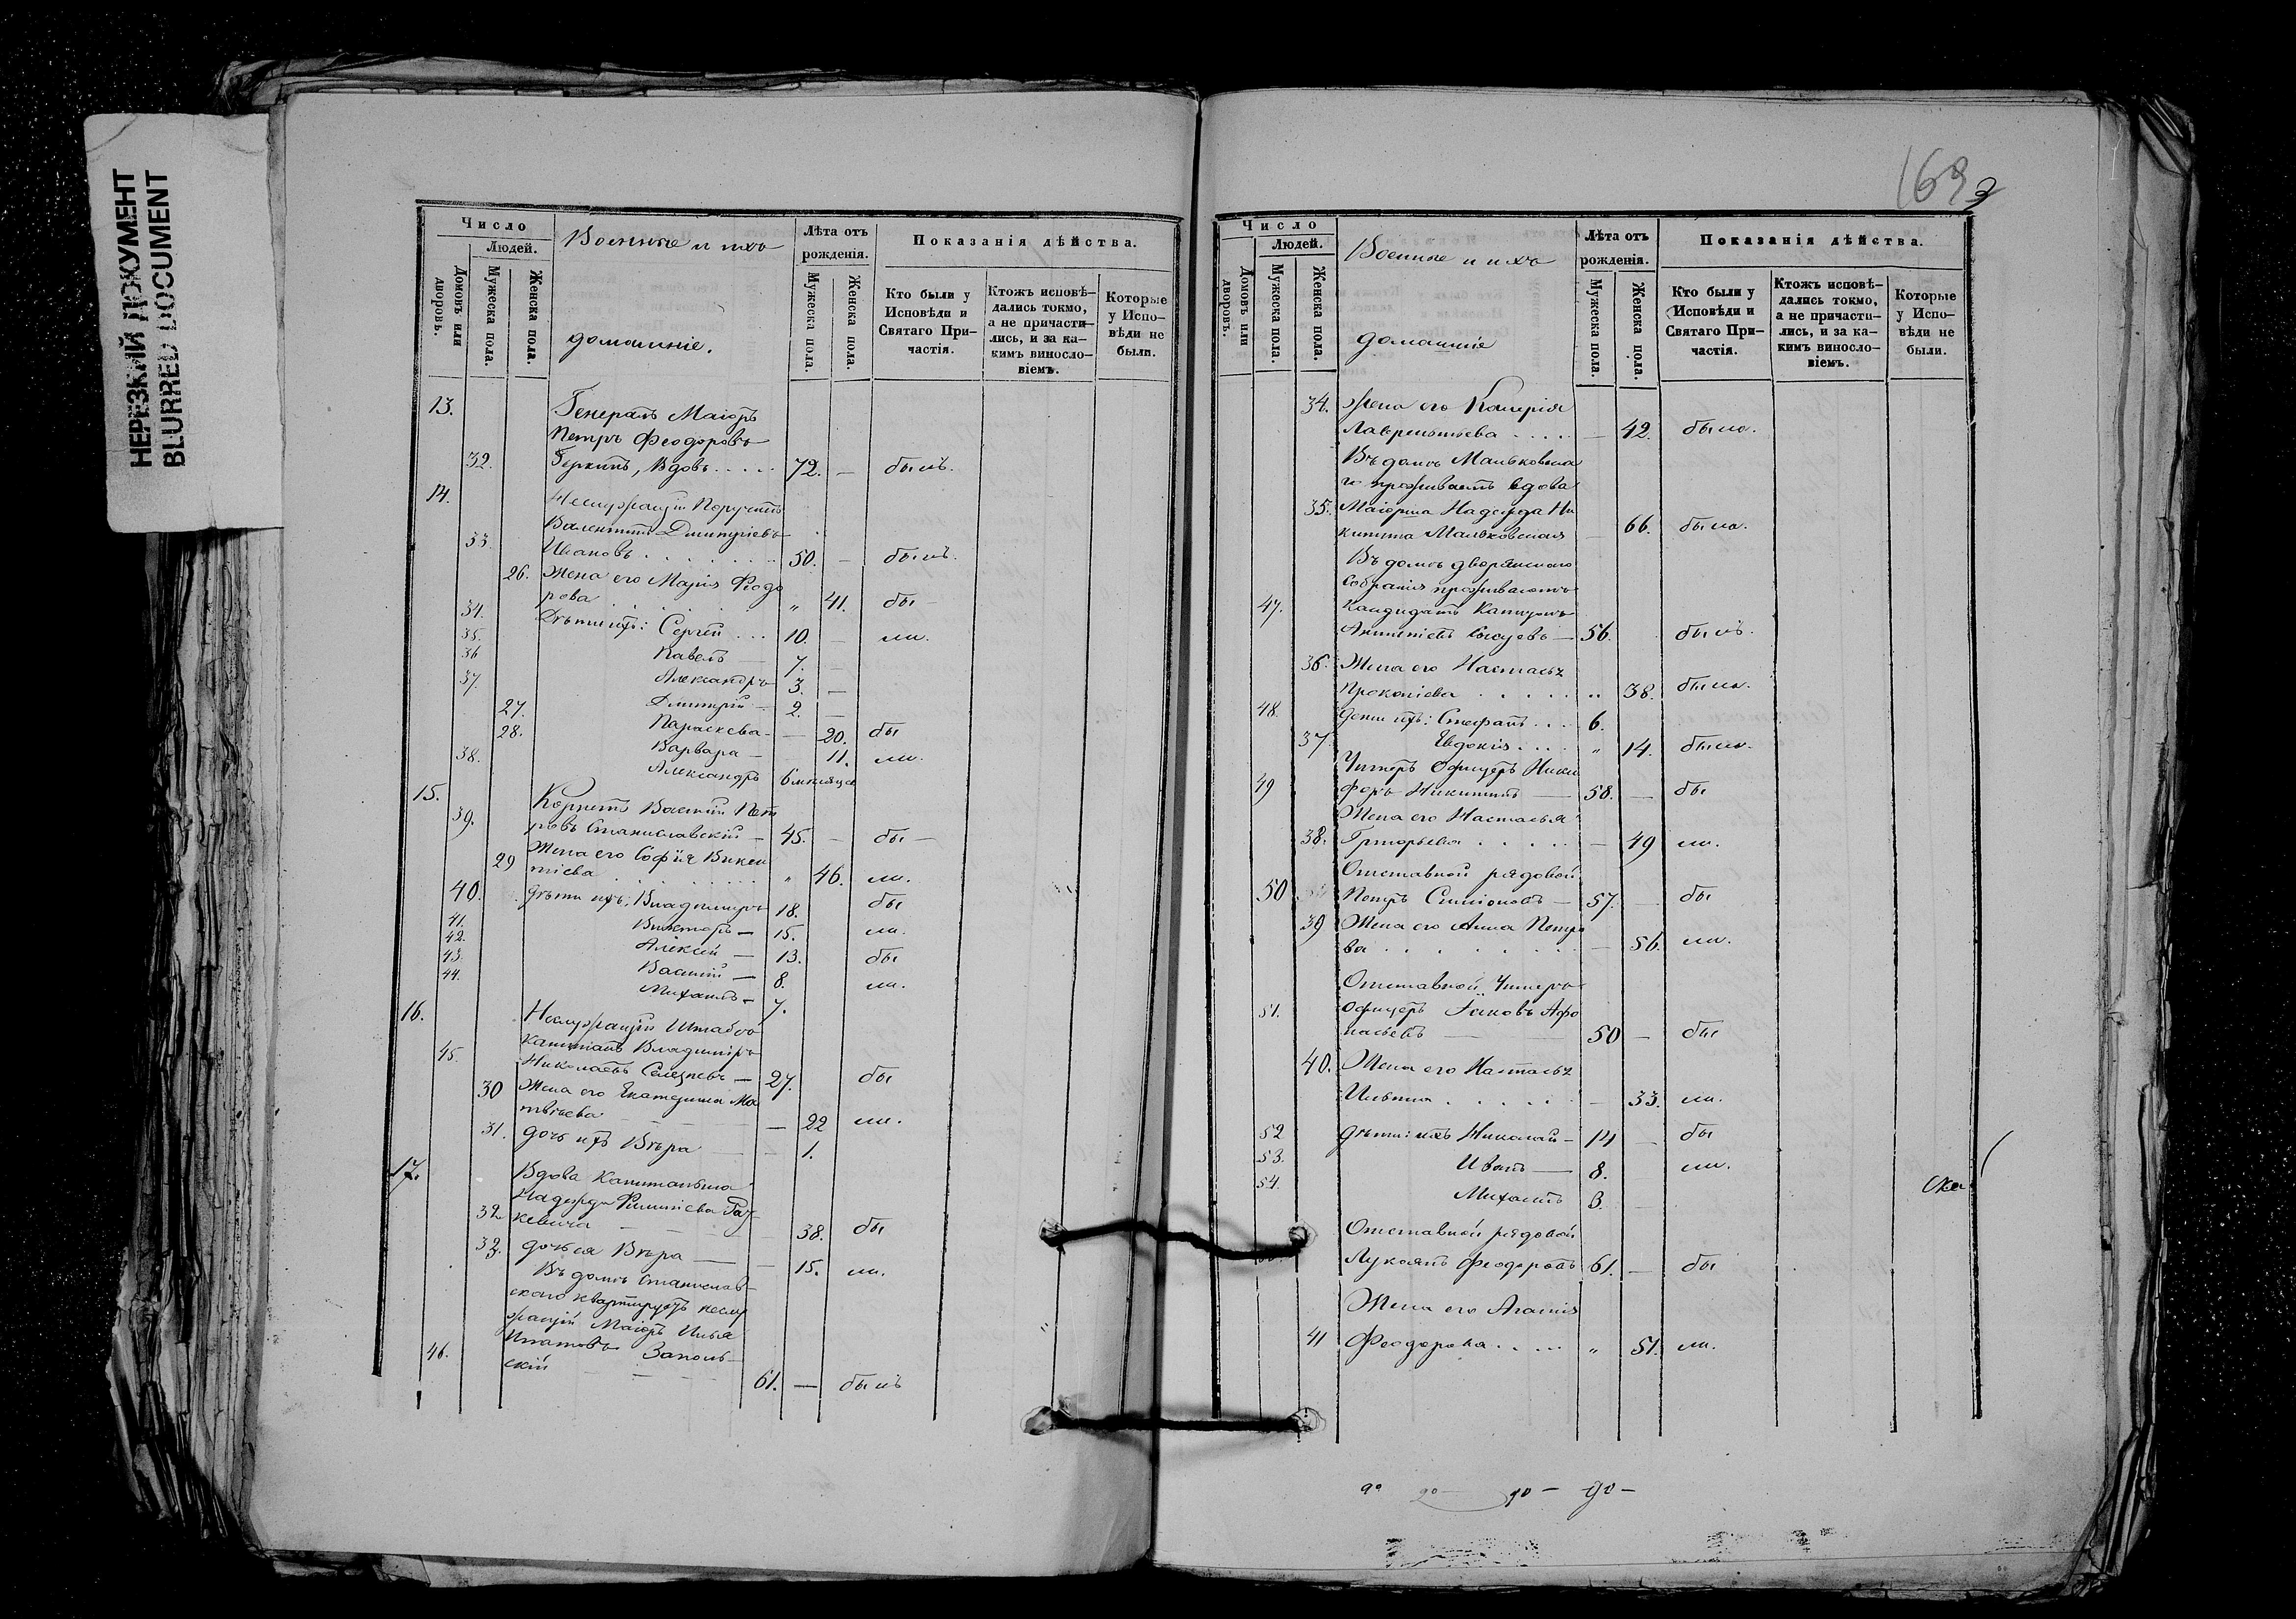 НЕРЕЗКИЙ ДОКУМЕНТ
BLURRED DOCUMENT
Число
Людей.
Домовъ или дворовъ.
Мужеска пола.
Женска пола.
Военные и ихъ
домашніе.
Лѣта отъ рожденія.
Мужеска пола.
Женска пола.
Показанія дѣйства.
Кто были у Исповѣди и Святаго Причастія.
Ктожъ исповѣдались токмо, а не причастились, и за какимъ винословіемъ.
Которые у Исповѣди не были.
13. Генералъ Маіоръ
Петръ Феодоровъ
32. Вдовъ 72. — былъ.
14. Неслужащій Поручикъ
Валентинъ Дмитріевъ
33. Ивановъ 50. — былъ.
26. Жена его Марія Феодо
рова „ 41. бы —
34. Дѣти ихъ: Сергей 10. — ли.
35. Павелъ — 7. —
36 Александръ 3. —
37. Дмитрій — 2. —
27. Параскева — 20. бы
28. Варвара — 11. ли.
38. Александръ 6 мѣсяцевъ
15. Корнетъ Василій Пет
39. ровъ Станиславскій — 45. — бы —
29 Жена его Софія Викен
тіева „ 46. ли.
40. Дѣти ихъ: Владимиръ 18. бы
41. Викторъ — 15. ли.
42. Алексей — 13. бы
43. Василій — 8. ли.
44. Михаилъ — 7.
16. Неслужащій Штабсъ
Капитанъ Владиміръ
45. Николаевъ Селезневъ — 27. бы
30 Жена его Екатерина Ма
твѣева — 22 ли.
31. дочь ихъ Вѣра — 1.
17. Вдова Капитанша
Надежда Филипіева
32. кевича 38. бы
33. дочь ея Вѣра — 15. ли.
Въ домѣ Станислав
скаго квартируетъ неслу
жащій Маіоръ Илья
46. Игнатовъ Заполь
скій 61. — былъ
169
Число
Людей.
Домовъ или дворовъ.
Мужеска пола.
Женска пола.
Военные и ихъ
домашніе
Лѣта отъ рожденія.
Мужеска пола.
Женска пола.
Показанія дѣйства.
Кто были у Исповѣди и Святаго Причастія.
Ктожъ исповѣдались токмо, а не причастились, и за какимъ винословіемъ.
Которые у Исповѣди не были.
34. Жена его Калерія
Лаврентьева — 42. была.
Въ домѣ Мальковска
го проживаетъ вдова
35. Маіорша Надежда Ни
китина Мальковская — 66. была.
Въ домѣ дворянскаго
собранія проживаетъ
47. Кандидатъ
56. былъ.
36. Жена его Настасья
Прокопіева „ 38. была.
48. дети ихъ: Стефанъ 6.
37 Евдокія „ 14. была.
Унтеръ Офицеръ Ники
49 форъ Никитинъ — 58. — бы
Жена его Настасья
38. Григорьева — 49 ли.
Отставной рядовой
50 Петръ Симіоновъ — 57. — бы
39 Жена его Анна Петро
ва — 56. ли.
Отставной Унтеръ
51. Офицеръ Іаковъ Афо
насьевъ — 50 — бы
40. Жена его Настасья
Ильина — 33. ли.
52 дѣти: ихъ Николай — 14 — бы
53. Иванъ — 8. ли.
54. Михаилъ 3. —
Отставной рядовой
Лукоянъ Феодоровъ 61. — бы
Жена его Агапія
41 Феодорова „ 51. ли.